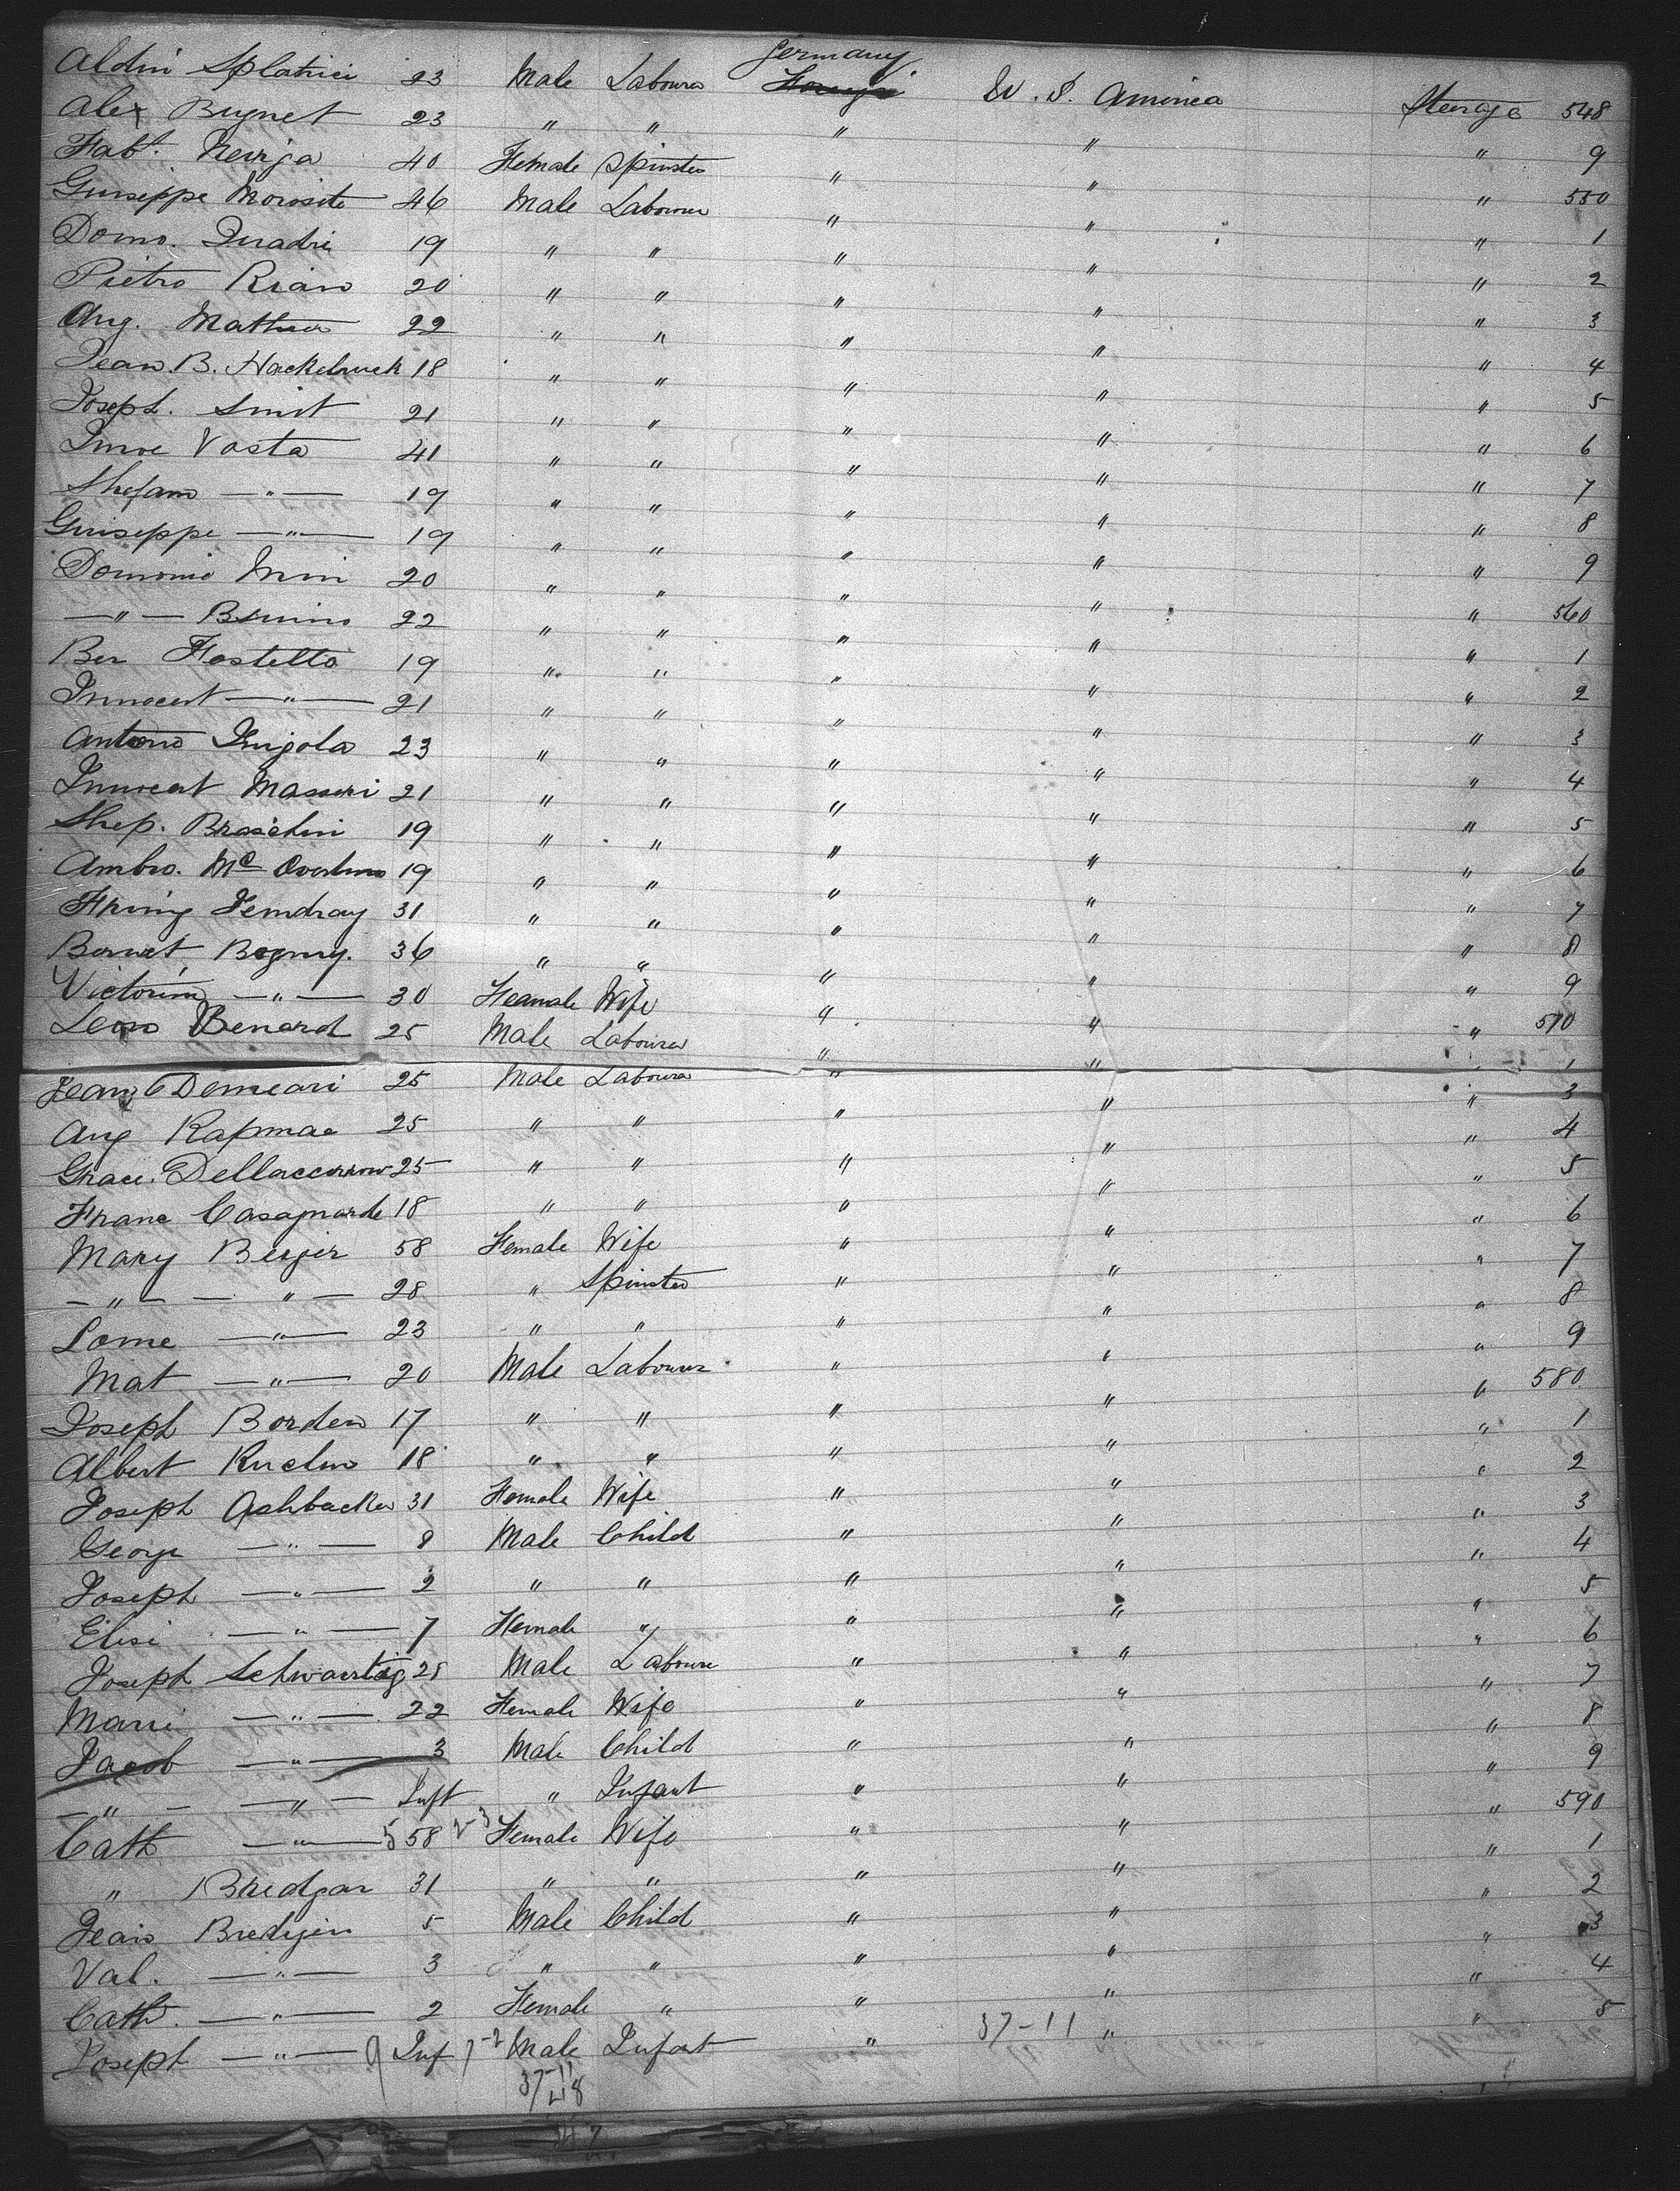 Germany
Aldini Splatrici 23 Male Labourer U. S. America Sterage 548
Alex Bugnet 23 " " " " " 9
Fabt. Neviga 40 Female Spinster " " " 550
Guiseppe Morosite 46 Male Labourer " " " 1
Domo. Quadri 19 " " " " " 2
Pietro Rian 20 " " " " " 3
Aug. Mathew 22 " " " " " 4
Jean. B. Hackebuck 18 " " " " " 5
Joseph. Smit 21 " " " " " 6
Vosta 41 " " " " " 7
Shefano — " — 19 " " " " " 8
Guiseppe — " — 19 " " " " " 9
Domonic Mini 20 " " " " " 560
— " — Bruino 22 " " " " " 1
Ber Fostetto 19 " " " " " 2
Innocent — " — 21 " " " " " 3
Antono 23 " " " " " 4
Innocent Masseri 21 " " " " " 5
Shep. Braschini 19 " " " " " 6
Ambro. Mc 19 " " " " " 7
Jendray 31 " " " " " 8
Bernet Bogmy. 36 " " " " " 9
Victorin — " — 30 Feamale Wife " " " 570
Leon Benard 25 Male Labourer " " " 1
Jean Demeari 25 Male Labourer " " " 3
Aug Rapmae 25 " " " " " 4
Grace. 25 " " " " " 5
Franc Casagnarde 18 " " " " " 6
Mary Berger 58 Female Wife " " " 7
— " — — " — 28 " Spinster " " " 8
Lome — " — 23 " " " " " 9
Mat — " — 20 Male Labourer " " " 580
Joseph Borden 17 " " " " " 1
Albert 18 " " " " " 2
Joseph Ashbacker 31 Female Wife " " " 3
George — " — 8 Male Child " " " 4
Joseph — " — 2 " " " " " 5
Elisi — " — 7 Female " " " " 6
Joseph Schwartzig 25 Male Laboure " " " 7
Marri — " — 22 Female Wife " " " 8
Jacob — " — 3 Male Child " " " 9
— " — — " — Inft " Infant " " " 590
Cath — " — 5 58 2-3 Female Wife " " " 1
" Bredgar 31 " " " " " 2
Jean Bredgen 5 Male Child " " " 3
Val. — " — 3 " " " " " 4
Cath. — " — 2 Female " " " " 5
Joseph — " — 9 Inf 7-2 Male Infant " 37-11 "
37-11
48